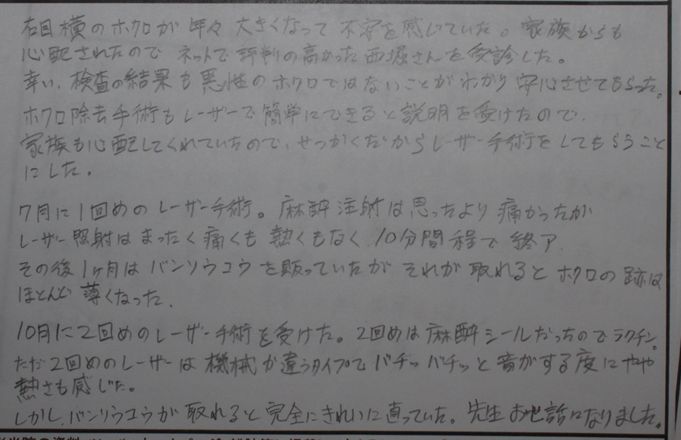 右目横のホクロが年々大きくなって不安を感じていた。家族からも
心配されたのでネットで評判の高かった西堀さんを受診した。
幸い、検査の結果も悪性のホクロではないことがわかり安心させてもらった。
ホクロ除去手術もレーザーで簡単にできると説明を受けたので、
家族も心配してくれていたので、せっかくだからレーザー手術をしてもらうこと
にした。
7月に1回めのレーザー手術。麻酔注射は思ったより痛かったが
レーザー照射はまったく痛くも熱くもなく、10分間程で終了。
その後1ヶ月はバンソウコウを貼っていたがそれが取れるとホクロの跡は
ほとんど薄くなった。
10月に2回めのレーザー手術を受けた。2回めは麻酔シールだったのでラクチン。
ただ2回めのレーザーは機械が違うタイプでバチッバチッと音がする度にやや
熱さも感じた。
しかし、バンソウコウが取れると完全にきれいに直っていた。先生お世話になりました。